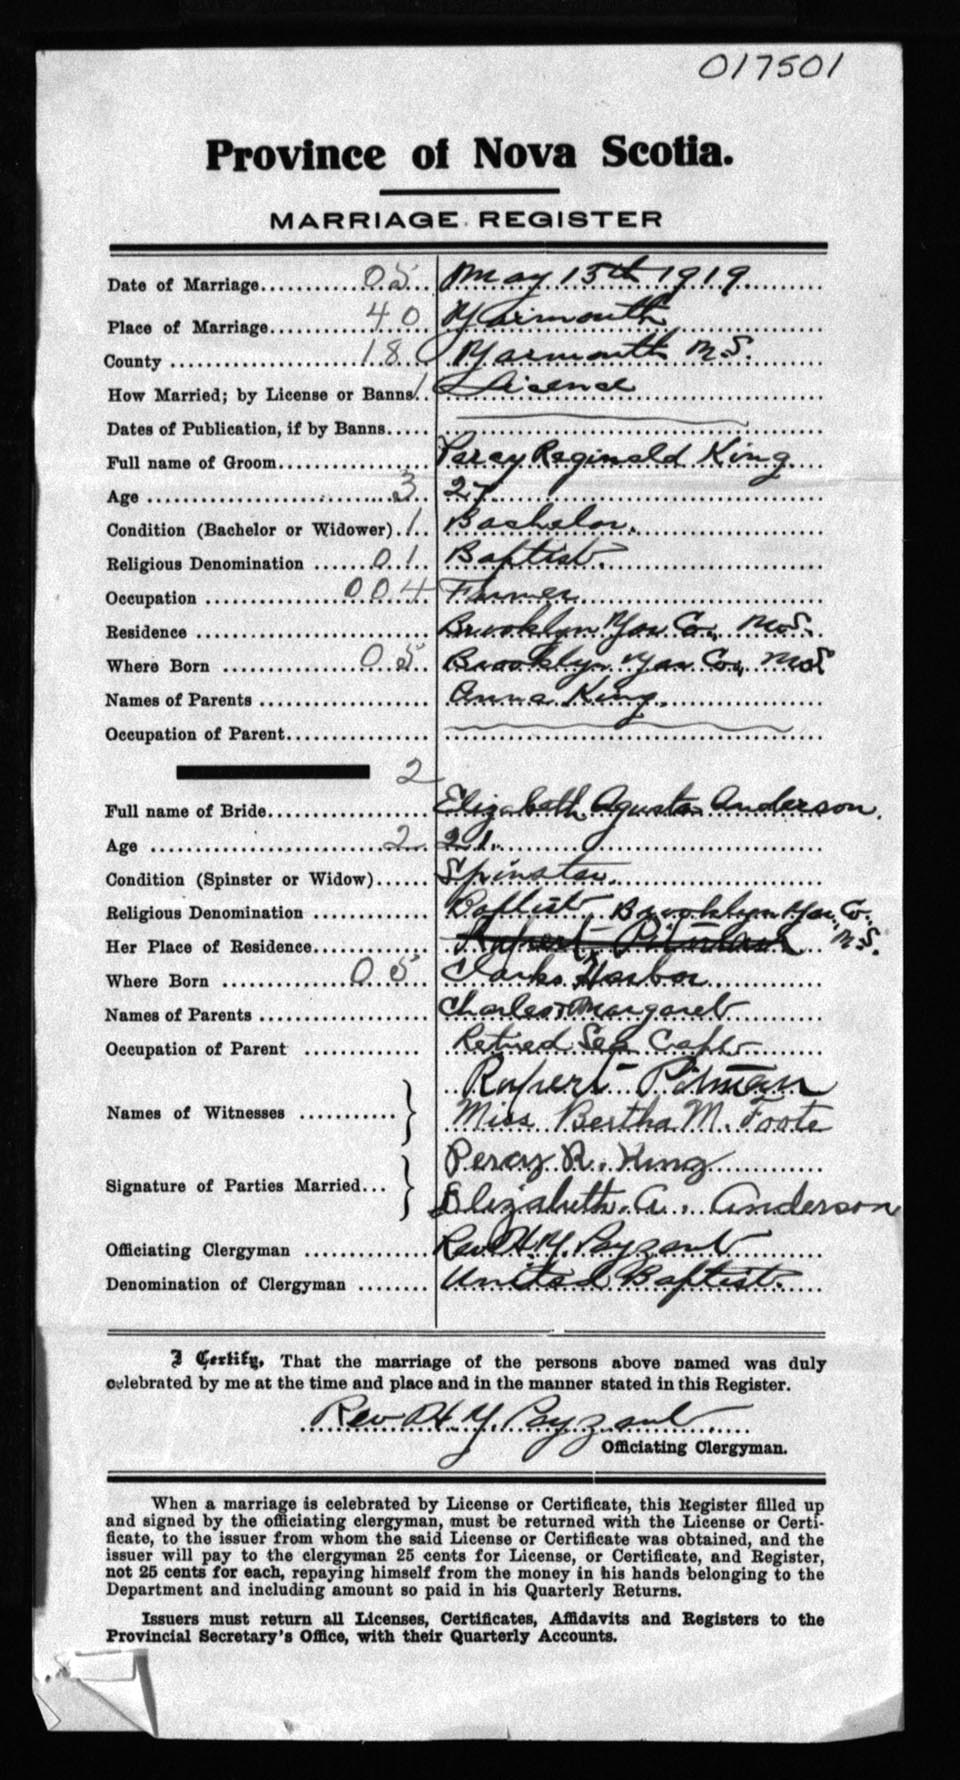 017501
Province of Nova Scotia.
MARRIAGE REGISTER
Date of Marriage 05 May 15th 1919
Place of Marriage 40 Yarmouth
County 18 Yarmouth N.S.
How Married; by License or Banns 1 License
Dates of Publication, if by Banns
Full name of Groom Percy Reginald King
Age 3 27
Condition (Bachelor or Widower) 1 Bachelor.
Religious Denomination 01 Baptist.
Occupation 004 Farmer
Residence Brooklyn Yar Co., N.S.
Where Born 05 Brooklyn Yar Co., N.S.
Names of Parents Anna King.
Occupation of Parent
2
Full name of Bride Elizabeth Agusta Anderson.
Age 2 21.
Condition (Spinster or Widow) Spinster.
Religious Denomination Baptist
Her Place of Residence Rupert Pitman Brooklyn Yar Co. N.S.
Where Born 05 Clarks Harbor
Names of Parents Charles & Margaret
Occupation of Parent Retired Sea Capt
Names of Witnesses Rupert Pitman
Miss Bertha M. Foote
Signature of Parties Married Percy R. King
Elizabeth A. Anderson
Officiating Clergyman Rev H.Y. Payzant
Denomination of Clergyman United Baptist.
I Certify, That the marriage of the persons above named was duly
celebrated by me at the time and place and in the manner stated in this Register.
Rev H.Y. Payzant
Officiating Clergyman.
When a marriage is celebrated by License or Certificate, this Register filled up
and signed by the officiating clergyman, must be returned with the License or Certi-
ficate, to the issuer from whom the said License or Certificate was obtained, and the
issuer will pay to the clergyman 25 cents for License, or Certificate, and Register,
not 25 cents for each, repaying himself from the money in his hands belonging to the
Department and including amount so paid in his Quarterly Returns.
Issuers must return all Licenses, Certificates, Affidavits and Registers to the
Provincial Secretary's Office, with their Quarterly Accounts.